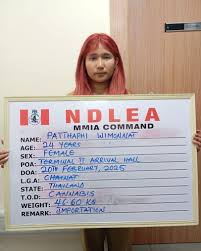 NDLEA
MMIA COMMAND
NAME: PATTHAPHI WIMONNAT
AGE: 24 YEARS
SEX: FEMALE
POA: TERMINAL II ARRIVAL HALL
DOA: 20TH FEBRUARY, 2025
L.G.A: CHAINAT
STATE: THAILAND
T.O.D: CANNABIS
WEIGHT: 46.60 KG
REMARK: IMPORTATION